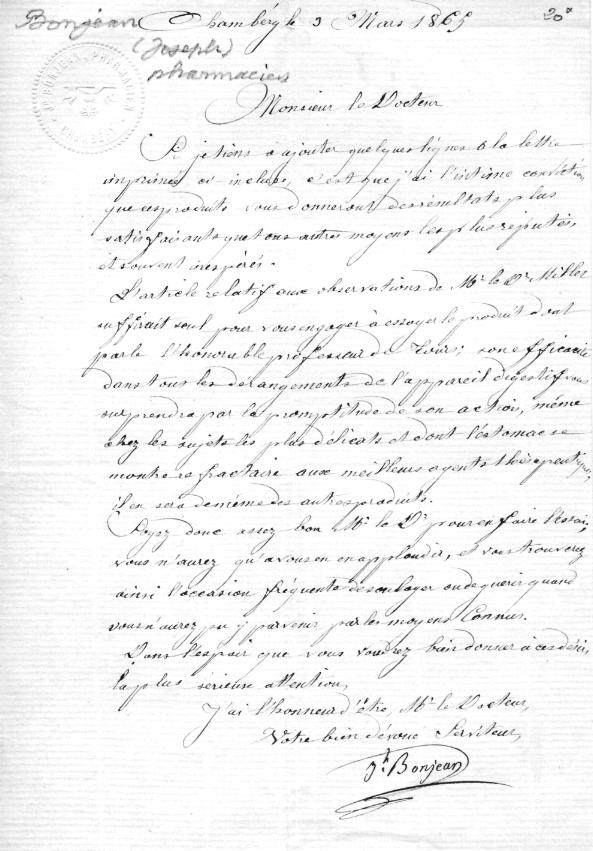 Bonjean
(Joseph)
pharmacien
Chambéry le 3 Mars 1865
20
Jh BONJEAN PHARMACIEN
CHAMBÉRY
Monsieur le Docteur
Si je tiens à ajouter quelques lignes à la lettre
imprimée ci incluse, c'est que j'ai l'intime conviction
que ces produits vous donneront des résultats plus
satisfaisants que tous autres moyens les plus réputés,
et souvent inespérés.
L'article relatif aux observations de Mr. le Dr. Millet
suffirait seul pour vous engager à essayer le produit dont
parle l'honorable professeur de Tours; son efficacité
dans tous les dérangements de l'appareil digestif vous
surprendra par la promptitude de son action, même
chez les sujets les plus délicats et dont l'estomac se
montre réfractaire aux meilleurs agents thérapeutiques,
il en sera de même des autres produits.
Soyez donc assez bon Mr. le Dr. pour en faire l'essai;
vous n'aurez qu'à vous en applaudir, et vous trouverez
ainsi l'occasion fréquente de soulager ou de guérir quand
vous n'aurez pu y parvenir par les moyens Connus.
Dans l'espoir que vous voudrez bien donner à ces
la plus sérieuse attention,
J'ai l'honneur d'être, Mr. le Docteur,
Votre bien dévoué Serviteur,
Jh. Bonjean